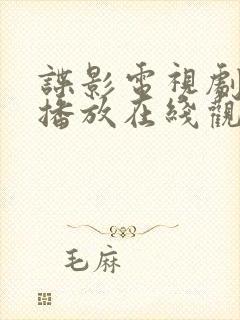 諜影電視劇
播放在綫觀
毛麻